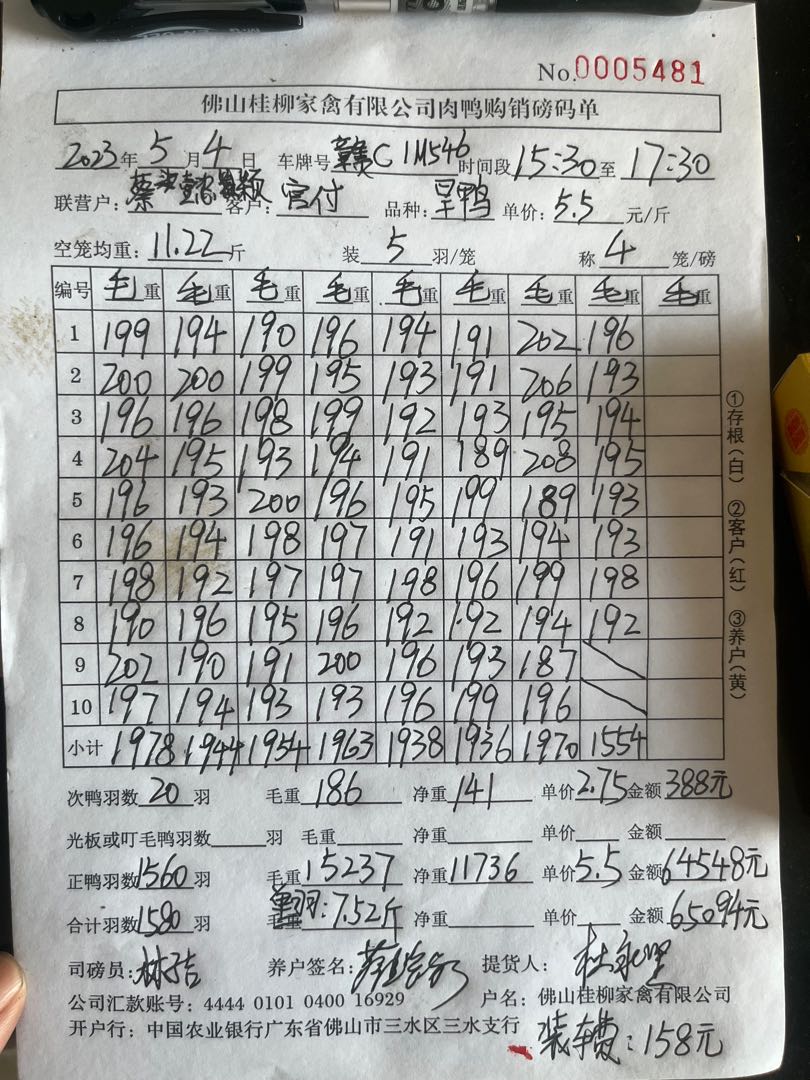 No.0005481
佛山桂柳家禽有限公司肉鸭购销磅码单
2023年5月4日 车牌号 赣C1M546 时间段 15:30至17:30
联营户：蔡 客户：宫付 品种：旱鸭 单价：5.5元/斤
空笼均重：11.22斤 装5羽/笼 称4笼/磅
编号 毛重 毛重 毛重 毛重 毛重 毛重 毛重 毛重 毛重
1 199 194 190 196 194 191 202 196
2 200 200 199 195 193 191 206 193
3 196 196 198 199 192 193 195 194
4 204 195 193 194 191 189 208 195
5 196 193 200 196 195 199 189 193
6 196 194 198 197 191 193 194 193
7 198 192 197 197 198 196 199 198
8 190 196 195 196 192 192 194 192
9 202 190 191 200 196 193 187
10 197 194 193 193 196 199 196
小计 1978 1944 1954 1963 1938 1936 1970 1554
①存根(白) ②客户(红) ③养户(黄)
次鸭羽数 20 羽 毛重 186 净重 141 单价 2.75 金额 388元
光板或叮毛鸭羽数 羽 毛重 净重 单价 金额
正鸭羽数 1560 羽 毛重 15237 净重 11736 单价 5.5 金额 64548元
合计羽数 1580 羽 单羽：7.52斤 净重 单价 金额 65094元
司磅员：林子吉 养户签名： 提货人：杜永坚
公司汇款账号：4444 0101 0400 16929 户名：佛山桂柳家禽有限公司
开户行：中国农业银行广东省佛山市三水区三水支行 装车费：158元